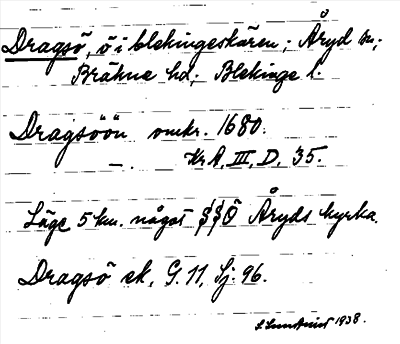 Dragsö, ö i blekingeskären; Åryd sn;
Bräkne hd; Blekinge l.
Dragsöön omkr. 1680.
Kr A, III, D, 35.
Läge 5 km. något S Ö Åryds kyrka.
Dragsö ek, G. 11, Sj. 96.
1938.